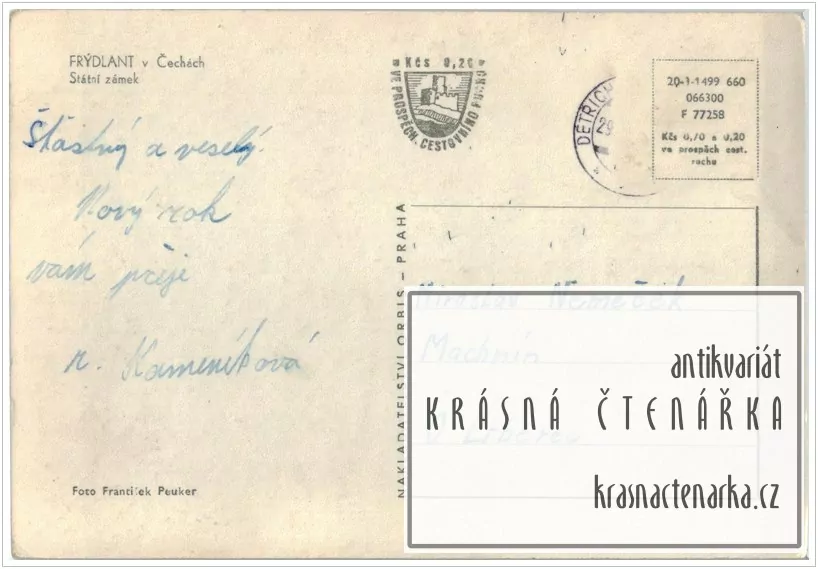 FRÝDLANT v Čechách
Státní zámek
Šťastný a veselý
Nový rok
vám přeje
r. Kameníková
Foto František Peuker
Kčs 0,20
VE PROSPĚCH CESTOVNÍHO RUCHU
DĚTŘICH
29
20-1-1499 660
066300
F 77258
Kčs 0,70 a 0,20
ve prospěch cest.
ruchu
NAKLADATELSTVÍ ORBIS – PRAHA
Miroslav Němeček
Machnín
U Liberce
antikvariát
KRÁSNÁ ČTENÁŘKA
krasnactenarka.cz